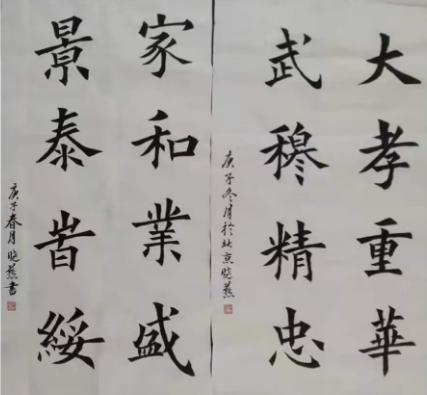 大孝重華
武穆精忠
庚子冬月於北京晓燕
家和業盛
景泰旹綏
庚子春月 晓燕書